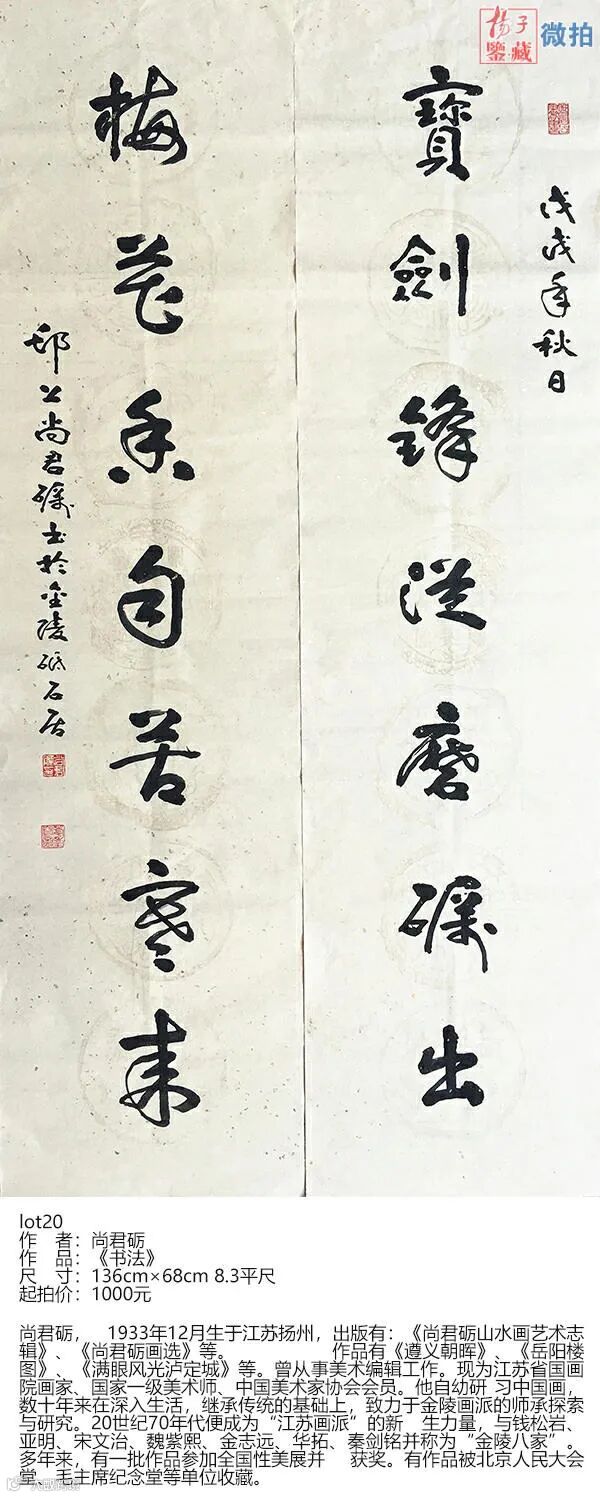 揚子
鑒藏
微拍
戊戌年秋日
寶劍鋒從磨礪出
梅花香自苦寒來
邗上尚君礪书於金陵砥石居
lot20
作 者：尚君砺
作 品：《书法》
尺 寸：136cm×68cm 8.3平尺
起拍价：1000元
尚君砺， 1933年12月生于江苏扬州，出版有：《尚君砺山水画艺术志
辑》、《尚君砺画选》等。 作品有《遵义朝晖》、《岳阳楼
图》、《满眼风光泸定城》等。曾从事美术编辑工作。现为江苏省国画
院画家、国家一级美术师、中国美术家协会会员。他自幼研 习中国画，
数十年来在深入生活，继承传统的基础上，致力于金陵画派的师承探索
与研究。20世纪70年代便成为“江苏画派”的新 生力量，与钱松岩、
亚明、宋文治、魏紫熙、金志远、华拓、秦剑铭并称为“金陵八家”。
多年来，有一批作品参加全国性美展并 获奖。有作品被北京人民大会
堂、毛主席纪念堂等单位收藏。